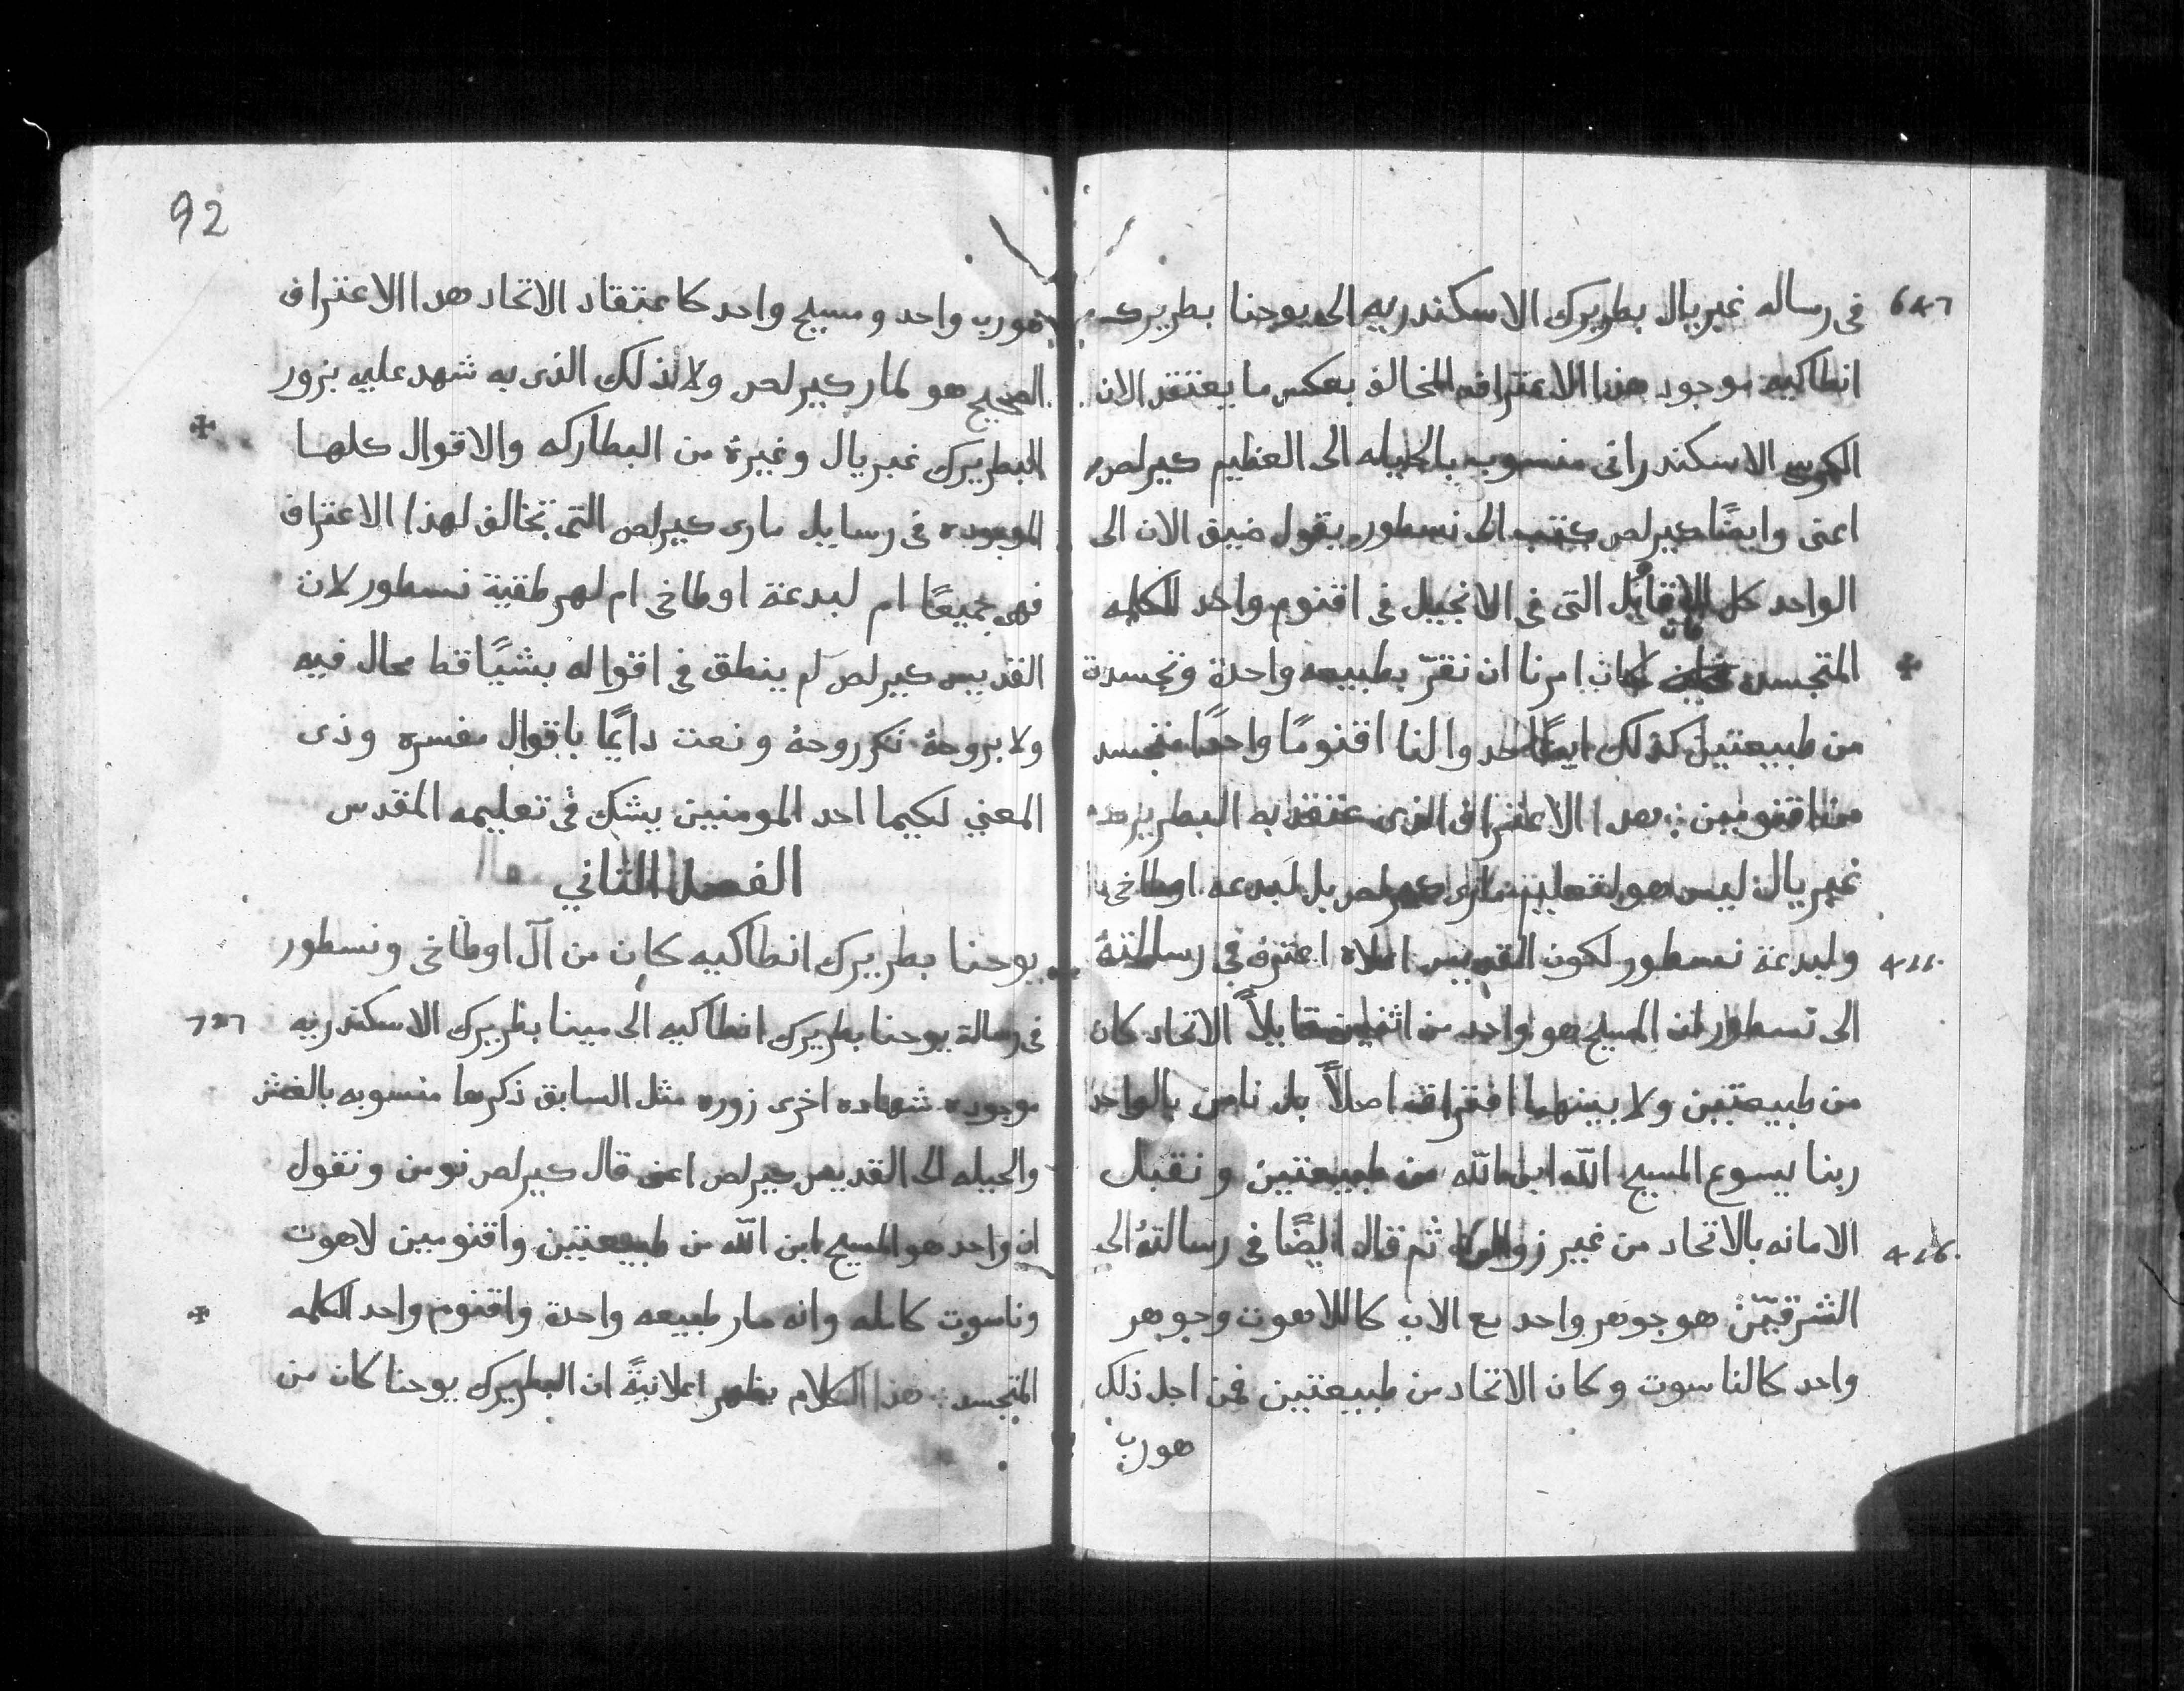 في رساله غبريال بطريرك الاسكندريه الى يوحنا بطريرك
انطاكيه موجود هذا الاعتراف المخالف بعكس ما يعتقد الان
الكرسي الاسكندراني منسوب بالحيله الى العظيم كيرلص
اعنى وايضًا كيرلص كتب الى نسطور يقول ضيق الان الى
الواحد كل الاقايل التى فى الانجيل فى اقنوم واحد للكلمه
المتجسد كان امرنا ان نقرّ بطبيعه واحدة وتجسدة
من طبيعتين كذلك ايضًا حدوا لنا اقنومًا واحدًا متجسد
من اقنومين هدا الاعتراف الذى عتقد به البطريرك
غبريال ليس هو لتعليم مارى كيرلص بل لبدعه اوطاخى
ولبدعة نسطور لكون القديس اعلاه اعترف في رسالتهُ
الى نسطور ان المسيح هو واحد من اثنين قايلاً الاتحاد كان
من طبيعتين ولا بينهما افتراق اصلاً بل نامن بالواحد
ربنا يسوع المسيح الله ابن الله من طبيعتين ونقبل
الامانه بالاتحاد من غير زوال ثم قال ايضًا فى رسالتهُ الى
الشرقيّين هو جوهر واحد مع الاب كاللاهوت وجوهر
واحد كالناسوت وكان الاتحاد من طبيعتين فمن اجل ذلك
هو رب
92
هو رب واحد ومسيح واحد كاعتقاد الاتحاد هدا الاعتراف
الصحيح هو لمار كيرلص ولا لذلك الذى به شهد عليه بزور
البطريرك غبريال وغيرهُ من البطاركه والاقوال كلها
الموجوده فى رسايل مارى كيرلص التى تخالف لهذا الاعتراف
فهى جميعًا ام لبدعة اوطاخى ام لهرطقية نسطور لان
القديس كيرلص لم ينطق فى اقواله بشيًا قط محال فيه
ولا بروحهُ نكر روحهُ ونعت دايمًا باقوال مفسره وذى
المعني لكيما احد المومنين يشك فى تعليمه المقدس
الفصل الثاني
يوحنا بطريرك انطاكيه كان من آل اوطاخى ونسطور
فى رسالة يوحنا بطريرك انطاكيه الى مينا بطريرك الاسكندريه
موجوده شهاده اخرى زوره مثل السابق ذكرها منسوبه بالغش
والحيله الى القديس كيرلص اعنى قال كيرلص نومن ونقول
ان واحد هو المسيح ابن الله من طبيعتين واقنومين لاهوت
وناسوت كامله وانه صار طبيعه واحدة واقنوم واحد الكلمه
المتجسد هذا الكلام يظهر اعلانيةً ان البطريرك يوحنا كان من